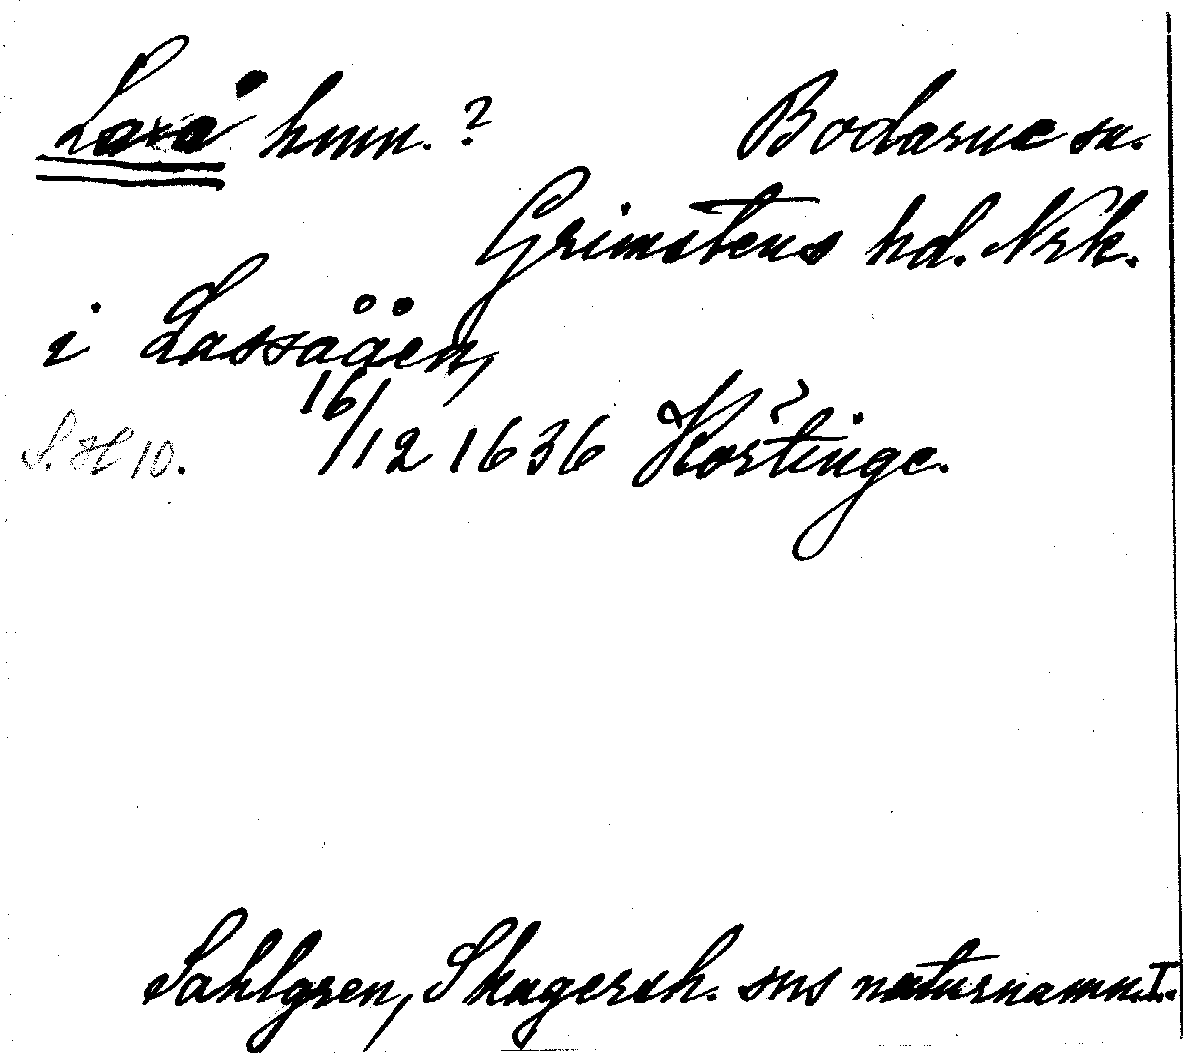 Laxå hmn.? Bodarne sn.
Grimstens hd. Nrk.
i Lassåån,
16/12 1636 Kortinge.
S. H 10.
Sahlgren, Skagersh. sns naturnamn. I.